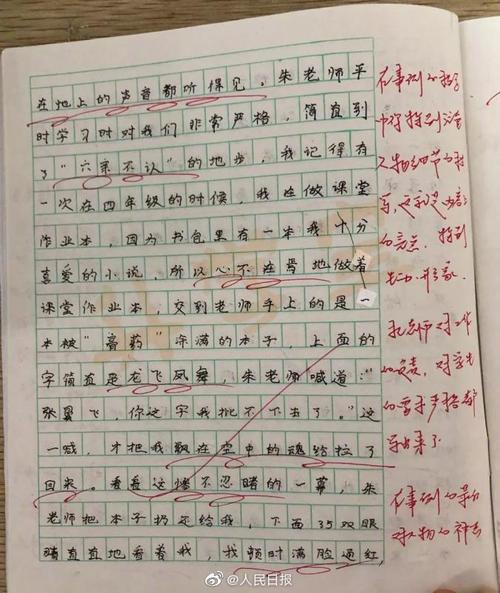 在地上的声音都听得见，朱老师平
时学习时对我们非常严格，简直到
了“六亲不认”的地步，我记得有
一次在四年级的时候，我在做课堂
作业本，因为书包里有一本我十分
喜爱的小说，所以心不在焉地做着
课堂作业本，交到老师手上的是一
本被“膏药”涂满的本子，上面的
字简直是龙飞凤舞，朱老师喊道：“
张翼飞，你这字我批不下去了。”这
一喊，才把我飘在空中的魂给拉了
回来。看着这惨不忍睹的一幕，朱
老师把本子扔还给我，下面35双眼
睛直直地看着我，我顿时满脸通红，
在事例的描写
中你特别注意
人物细节的描
写，这和是文章
的亮点，
朱老师对工作
的负责，对学生
的要求严格都
写出来了
在事例的
对人物的神态
@人民日报